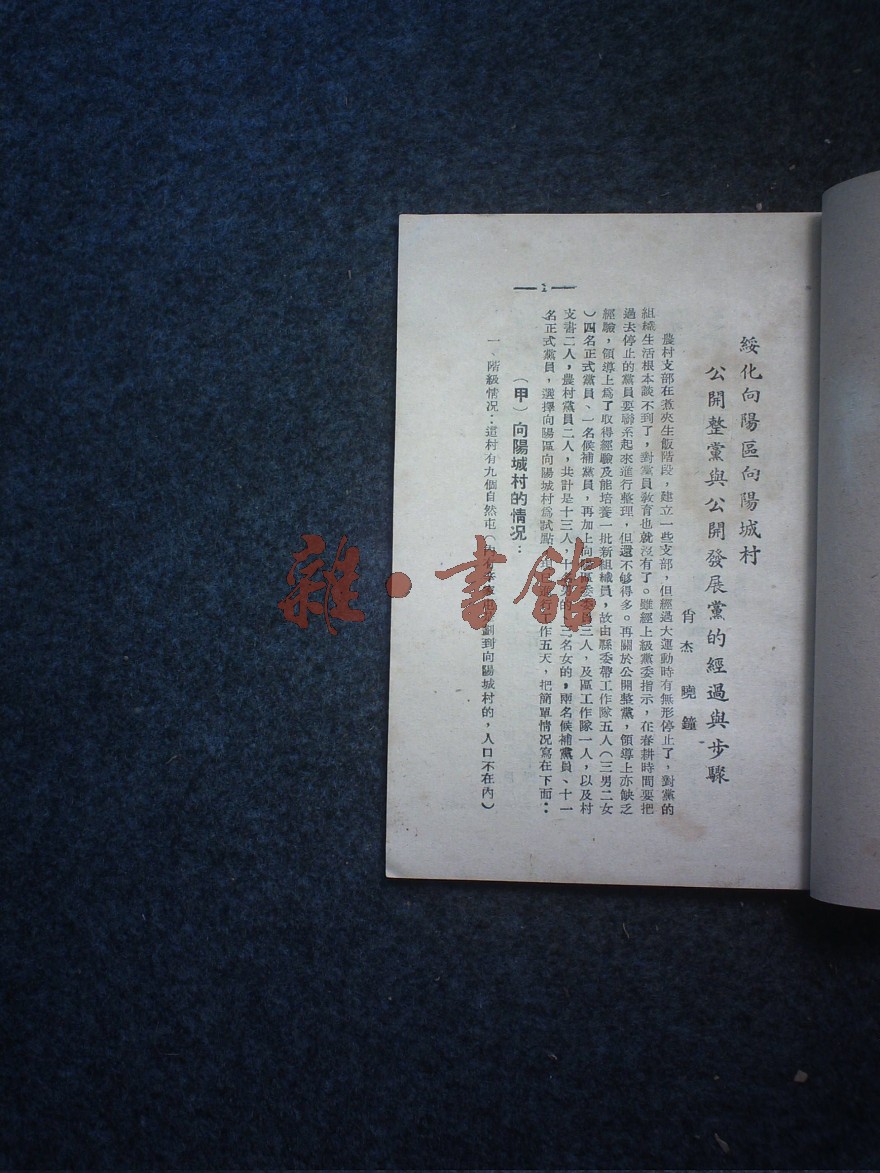 綏化向陽區向陽城村
公開整黨與公開發展黨的經過與步驟
肖杰 曉鐘
農村支部在煮夾生飯階段，建立一些支部，但經過大運動時有無形停止了，對黨的
組織生活根本談不到了，對黨員敎育也就沒有了。雖經上級黨委指示，在春耕時間要把
過去停止的黨員要聯系起來進行整理，但還不够得多。再關於公開整黨，領導上亦缺乏
經驗，領導上爲了取得經驗及能培養一批新組織員，故由縣委帶工作隊五人（三男二女
）四名正式黨員、一名候補黨員，再加上向陽區委 三人，及區工作隊一人，以及村
支書二人，農村黨員二人，共計是十三人，十名男的，三名女的，兩名候補黨員、十一
名正式黨員，選擇向陽區向陽城村爲試點， 作五天，把簡單情况寫在下面：
（甲）向陽城村的情况：
一、階級情况：這村有九個自然屯（ 劃到向陽城村的，人口不在內）
— 1 —
雜·書館